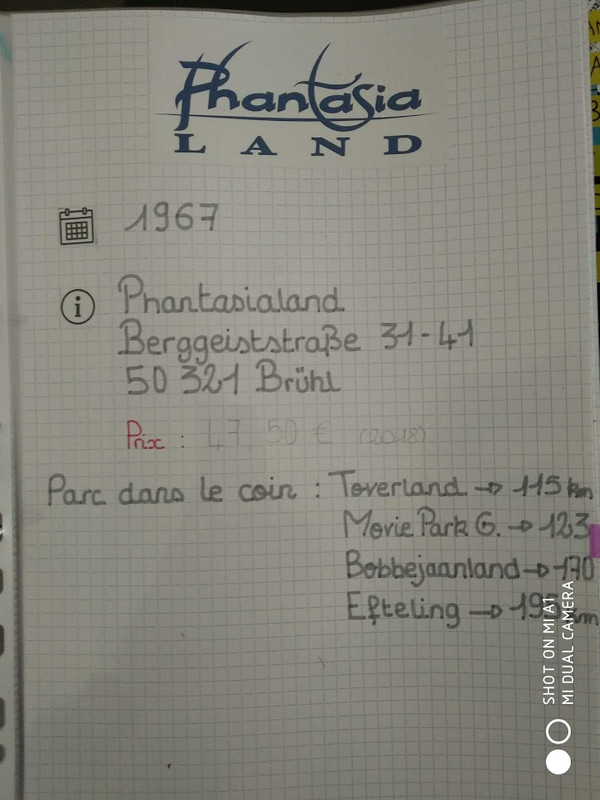 Phantasia
LAND
1967
Phantasialand
Berggeiststraße 31-41
50 321 Brühl
Prix : 47,50 € (2018)
Parc dans le coin : Toverland → 115 km
Movie Park G. → 123
Bobbejaanland → 170
Efteling → km
SHOT ON MI A1
MI DUAL CAMERA